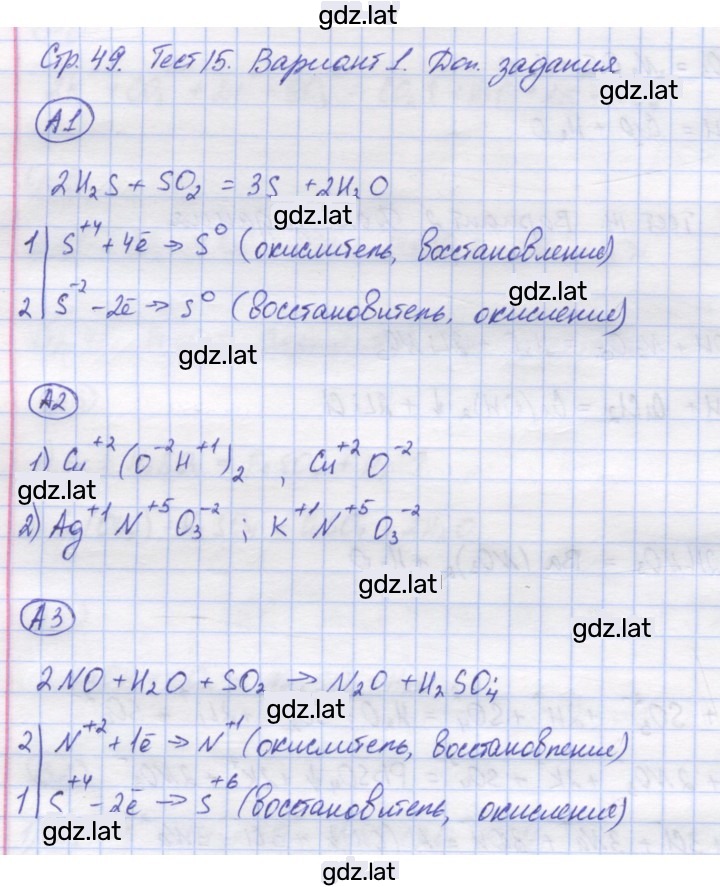 gdz.lat
Стр. 49. Тест 15. Вариант 1. Доп. задания
gdz.lat
А1
2H₂S + SO₂ = 3S + 2H₂O
gdz.lat
1 | S⁺⁴ + 4ē → S⁰ (окислитель, восстановление)
gdz.lat
2 | S⁻² - 2ē → S⁰ (восстановитель, окисление)
gdz.lat
А2
1) Cu⁺²(O⁻²H⁺¹)₂ , Cu⁺²O⁻²
gdz.lat
2) Ag⁺¹N⁺⁵O₃⁻² ; K⁺¹N⁺⁵O₃⁻²
gdz.lat
А3
gdz.lat
2NO + H₂O + SO₂ → N₂O + H₂SO₄
gdz.lat
2 | N⁺² + 1ē → N⁺¹ (окислитель, восстановление)
1 | S⁺⁴ - 2ē → S⁺⁶ (восстановитель, окисление)
gdz.lat
gdz.lat